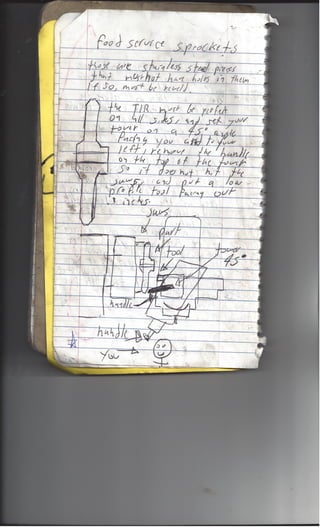 food service sprockets
those are stainless steel pieces
that must not have holes in them
if so, must be rewelded
the TIR must be perfect
on all sides, and set your
tower on a 45° angle
facing you and to your
left, remove the handle
on the top of the tower
so it does not hit the
jaws, and put a low
profile tool facing out
3 inches.
jaws
part
tool
tower
45°
handle
handle
you